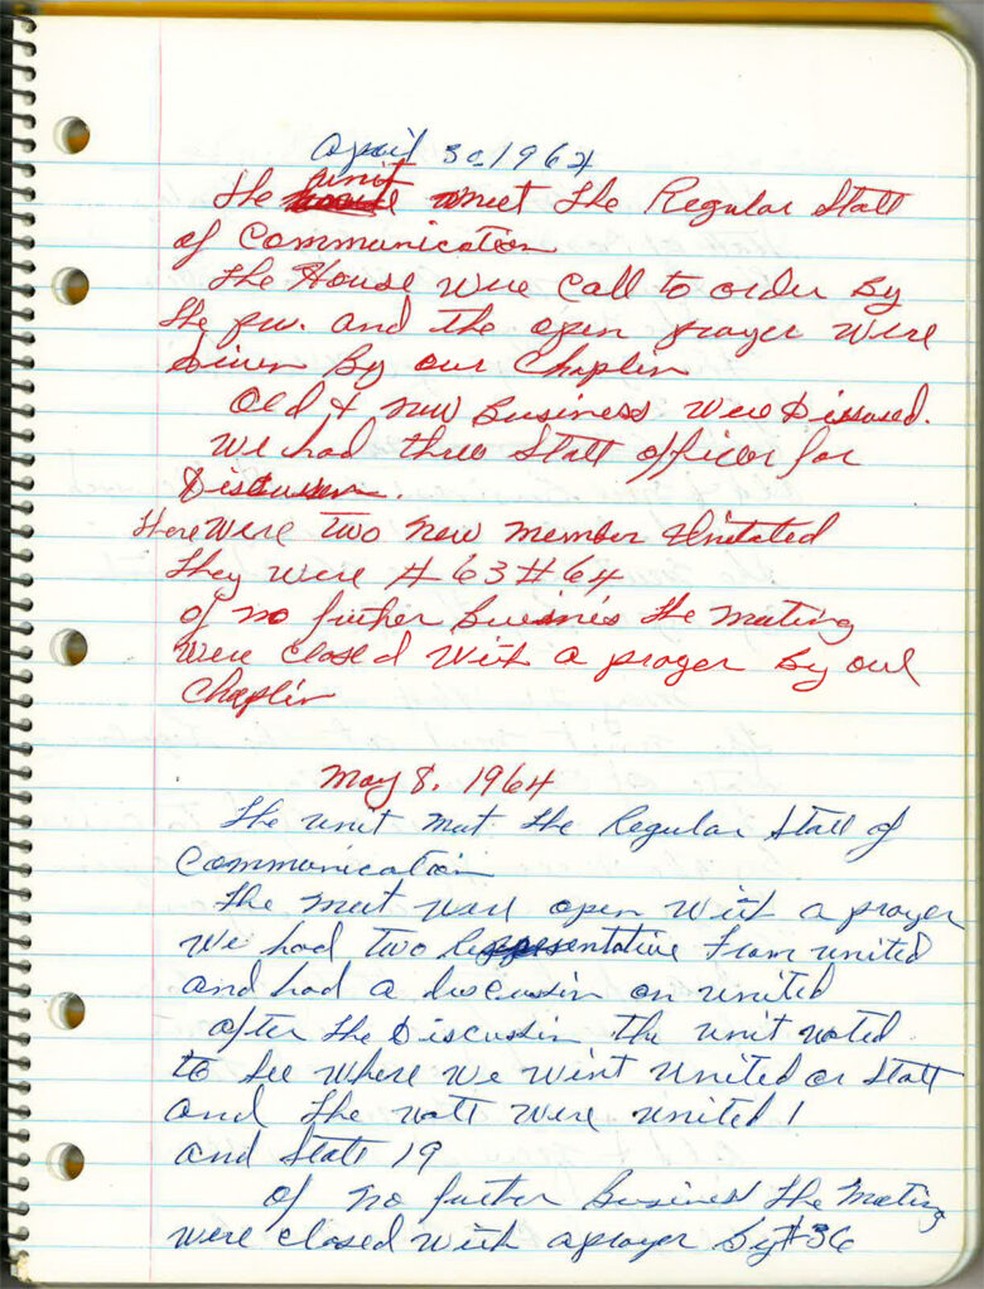 April 30 1964
unit
The meet the Regular Statt
of Communication
The House were call to order By
the pw. and the open prayer were
Given By our Chaplin
Old & new Business were Dissused.
We had three Statt officer for
Discussen.
There were Two new member Initated
they were #63 #64
of no futher Buisnes the meating
were closed with a prayer By our
Chaplin
May 8, 1964
The unit met the Regular Statt of
Communication
The meet was open with a prayer
We had two Representative From united
and had a discussin on united
after the Discussin the unit voted
to see where we went united or Statt
and the vott were united 1
and Statt 19
of no futher Business the Meating
were closed with a prayer By #36